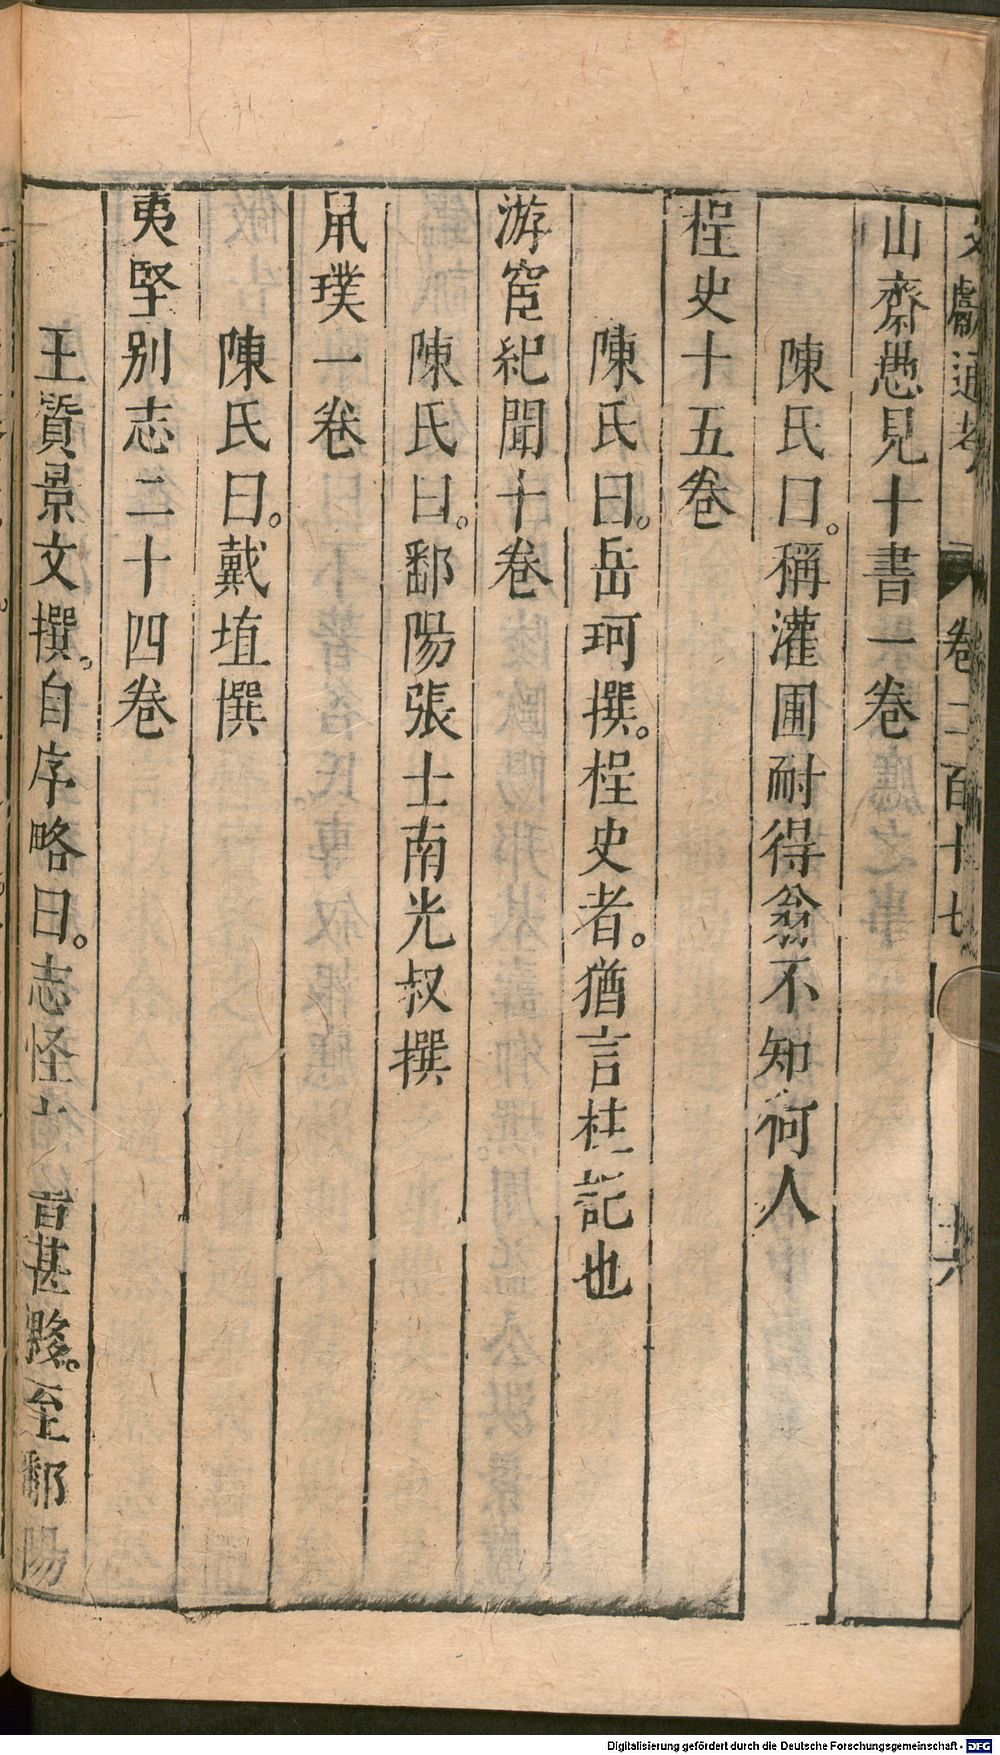 文獻通考 卷二百十七 共
山齋愚見十書一卷
陳氏曰。稱灌圃耐得翁不知何人
桯史十五卷
陳氏曰。岳珂撰。桯史者。猶言柱記也
游宦紀聞十卷
陳氏曰。鄱陽張士南光叔撰
鼠璞一卷
陳氏曰。戴埴撰
夷堅別志二十四卷
王質景文撰。自序略曰。志怪 甚夥。至鄱陽
Digitalisierung gefördert durch die Deutsche Forschungsgemeinschaft - DFG